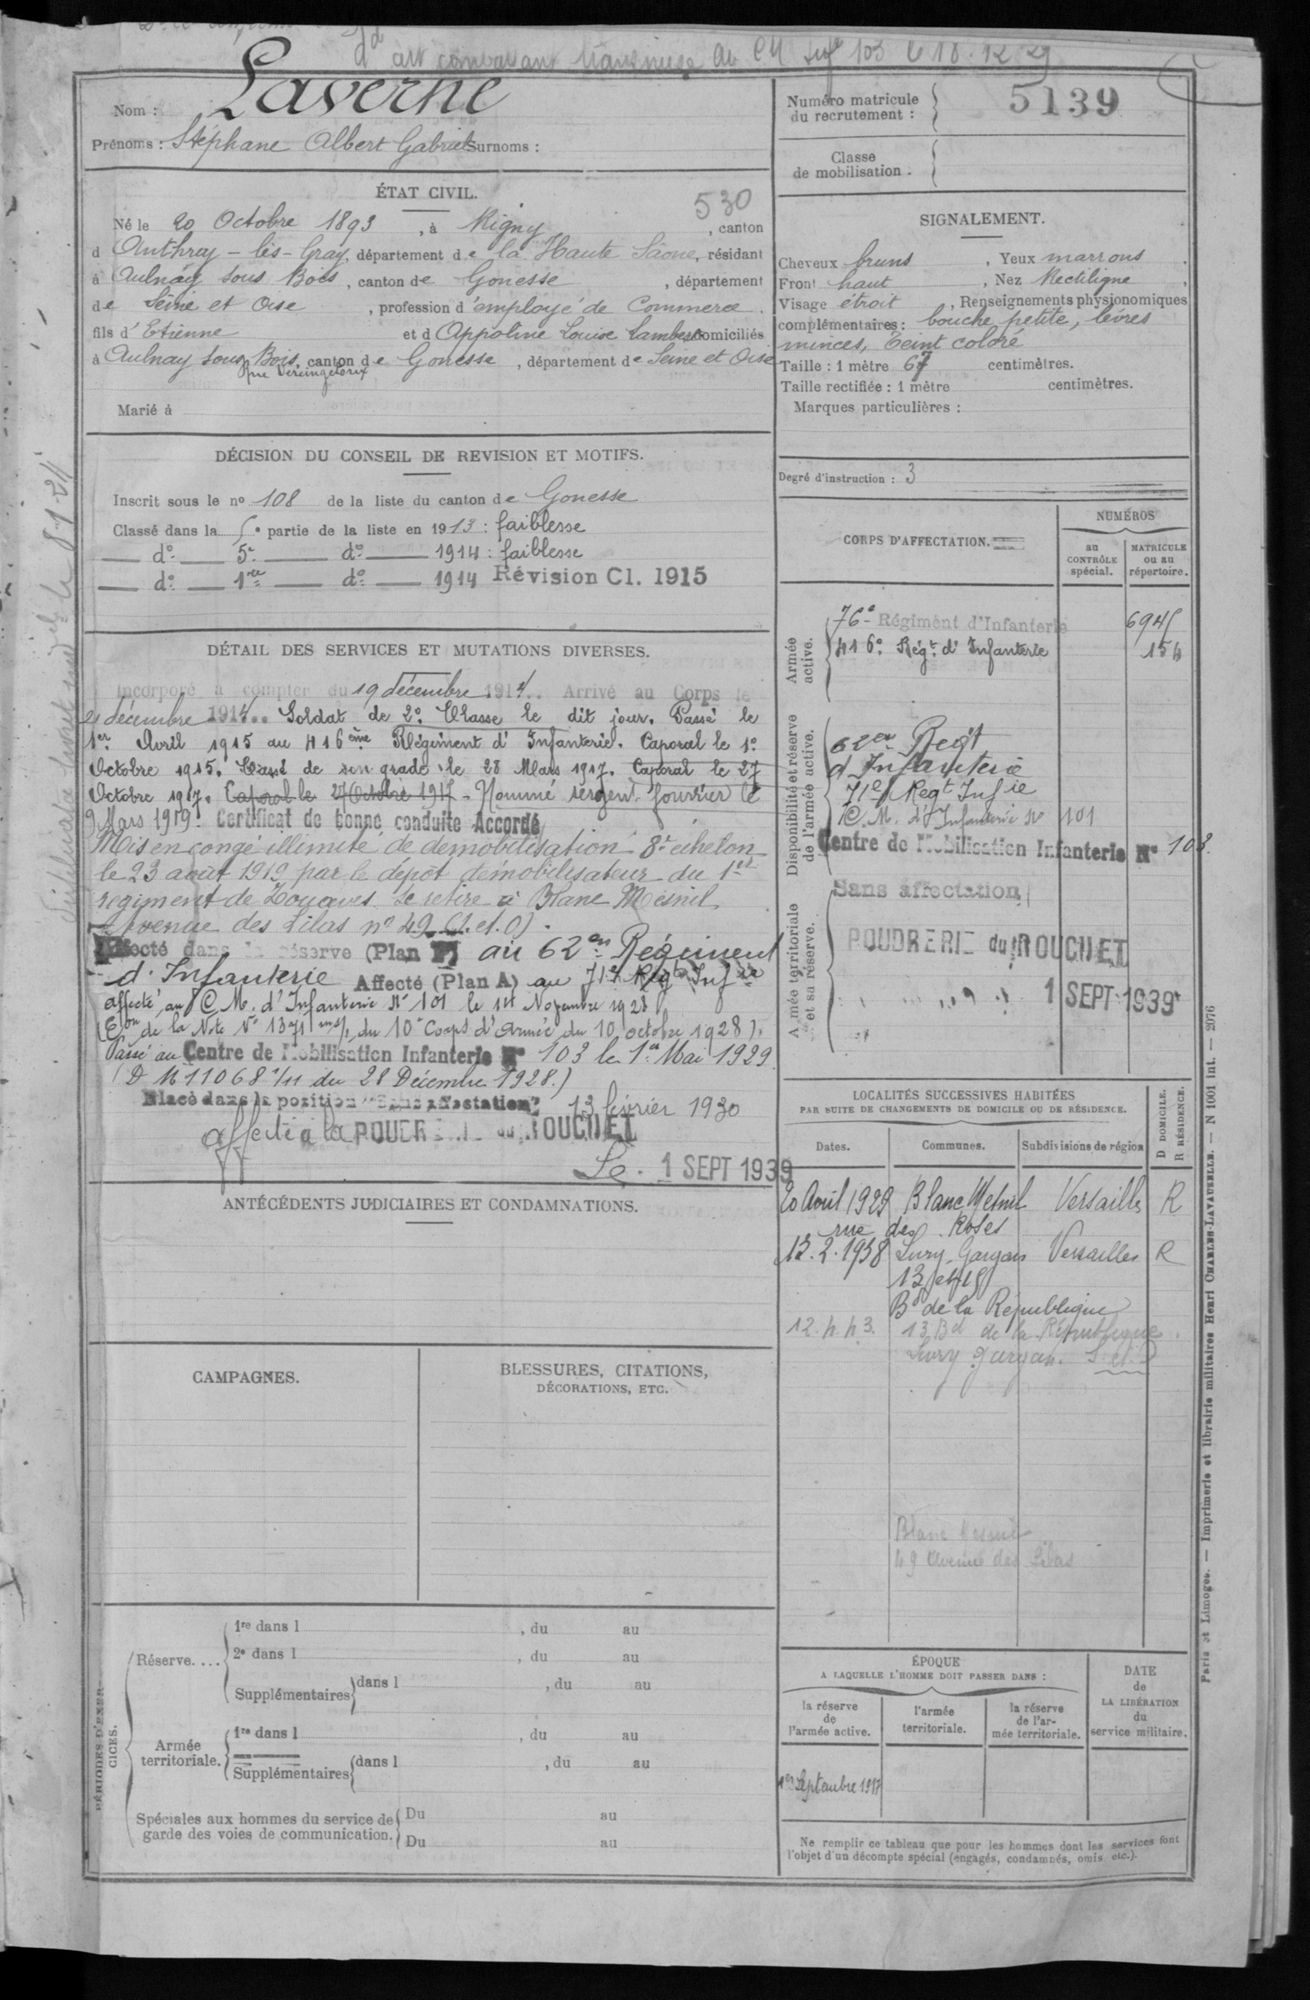 art combattant transmise au CM Inf 103 le 18.12.29
Nom : Laverne
Prénoms : Stéphane Albert Gabriel Surnoms :
ÉTAT CIVIL.
530
Né le 20 Octobre 1893, à Rigny, canton
d'Authrey-lès-Gray, département de la Haute Saône, résidant
à Aulnay sous Bois, canton de Gonesse, département
de Seine et Oise, profession d'employé de Commerce.
fils d'Etienne et d'Appoline Louise Lambert domiciliés
à Aulnay sous Bois, canton de Gonesse, département de Seine et Oise
rue Vercingétorix
Marié à
DÉCISION DU CONSEIL DE REVISION ET MOTIFS.
Inscrit sous le no 108 de la liste du canton de Gonesse
Classé dans la 5e partie de la liste en 1913 : faiblesse
— do — 5e — do — 1914 : faiblesse
— do — 1re — do — 1914 Révision Cl. 1915
DÉTAIL DES SERVICES ET MUTATIONS DIVERSES.
Incorporé à compter du 19 décembre 1914. Arrivé au Corps le
21 décembre 1914. Soldat de 2e Classe le dit jour. Passé le
1er Avril 1915 au 416ème Régiment d'Infanterie. Caporal le 1er
Octobre 1915. Cassé de son grade le 28 Mars 1917. Caporal le 27
Octobre 1917. Caporal le 27 Octobre 1917 - Nommé sergent fourrier le
9 Mars 1919. Certificat de bonne conduite Accordé
Mis en congé illimité de démobilisation 8e échelon
le 23 août 1919 par le dépôt démobilisateur du 1er
régiment de Zouaves. Se retire à Blanc Mesnil
Avenue des Lilas no 49 (S. et. O).
Affecté dans la réserve (Plan P) au 62en Régiment
d'Infanterie Affecté (Plan A) au 71e Régt Infie
affecté au C.M. d'Infanterie No 101 le 14 Novembre 1928
(Eon de la Note No 1371 du 10e Corps d'Armée du 10 octobre 1928).
Passé au Centre de Mobilisation Infanterie No 103 le 1er Mai 1929
(D M 11068 1/11 du 28 Décembre 1928.)
Placé dans la position "Sans affectation" 13 février 1930
affecté à la POUDRERIE du BOUCHET
Le 1 SEPT 1939
ANTÉCÉDENTS JUDICIAIRES ET CONDAMNATIONS.
CAMPAGNES.
BLESSURES, CITATIONS,
DÉCORATIONS, ETC.
PÉRIODES D'EXERCICES.
Réserve....
1re dans l , du au
2e dans l , du au
Supplémentaires dans l , du au
Armée territoriale.
1re dans l , du au
Supplémentaires dans l , du au
Spéciales aux hommes du service de garde des voies de communication.
Du au
Du au
Numéro matricule du recrutement : 5139
Classe de mobilisation :
SIGNALEMENT.
Cheveux bruns, Yeux marrons
Front haut, Nez Rectiligne
Visage étroit, Renseignements physionomiques
complémentaires : bouche petite, lèvres
minces, teint coloré
Taille : 1 mètre 67 centimètres.
Taille rectifiée : 1 mètre centimètres.
Marques particulières :
Degré d'instruction : 3
CORPS D'AFFECTATION.
NUMÉROS
au CONTRÔLE spécial.
MATRICULE ou au répertoire.
Armée active.
76e Régiment d'Infanterie 6945
416e Régt d'Infanterie 154
Disponibilité et réserve de l'armée active.
62en Regt
d'Infanterie
71e Regt Infie
C.M. d'Infanterie No 101
Centre de Mobilisation Infanterie No 103
Armée territoriale et sa réserve.
Sans affectation
POUDRERIE du BOUCHET
1 SEPT 1939
LOCALITÉS SUCCESSIVES HABITÉES
PAR SUITE DE CHANGEMENTS DE DOMICILE OU DE RÉSIDENCE.
Dates. Communes. Subdivisions de région D DOMICILE. R RÉSIDENCE.
20 Aout 1929 Blanc Mesnil Versailles R
rue des Roses
13.2.1938 Livry-Gargan Versailles R
13 et 15
Bd de la République
12.4.43. 13 Bd de la République.
Livry gargan. S et O
Blanc Mesnil
49 Avenue des Lilas
ÉPOQUE
A LAQUELLE L'HOMME DOIT PASSER DANS :
la réserve de l'armée active.
l'armée territoriale.
la réserve de l'armée territoriale.
DATE de LA LIBÉRATION du service militaire.
1er Septembre 1917
Ne remplir ce tableau que pour les hommes dont les services font
l'objet d'un décompte spécial (engagés, condamnés, omis etc.).
Paris et Limoges. — Imprimerie et librairie militaires Henri CHARLES-LAVAUZELLE. — N 1001 int. — 2076